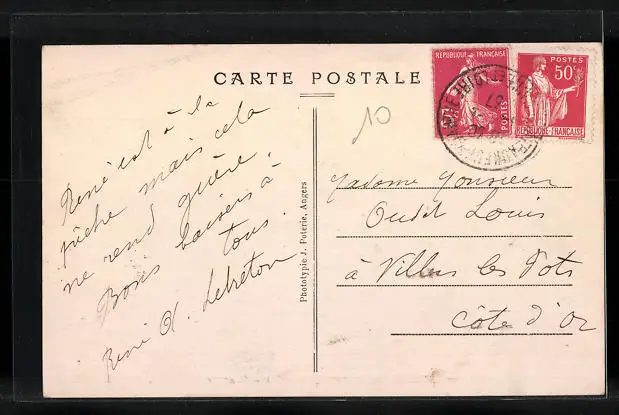 CARTE POSTALE
10
René est à la
pêche mais cela
ne rend guère.
Bons baisers à
tous.
René A. Lebreton
Phototypie J. Poterie, Angers
REPUBLIQUE FRANÇAISE
POSTES
POSTES
50c
REPUBLIQUE FRANÇAISE
Madame Monsieur
Oudot Louis
à Villers les Pots
Côte d'Or